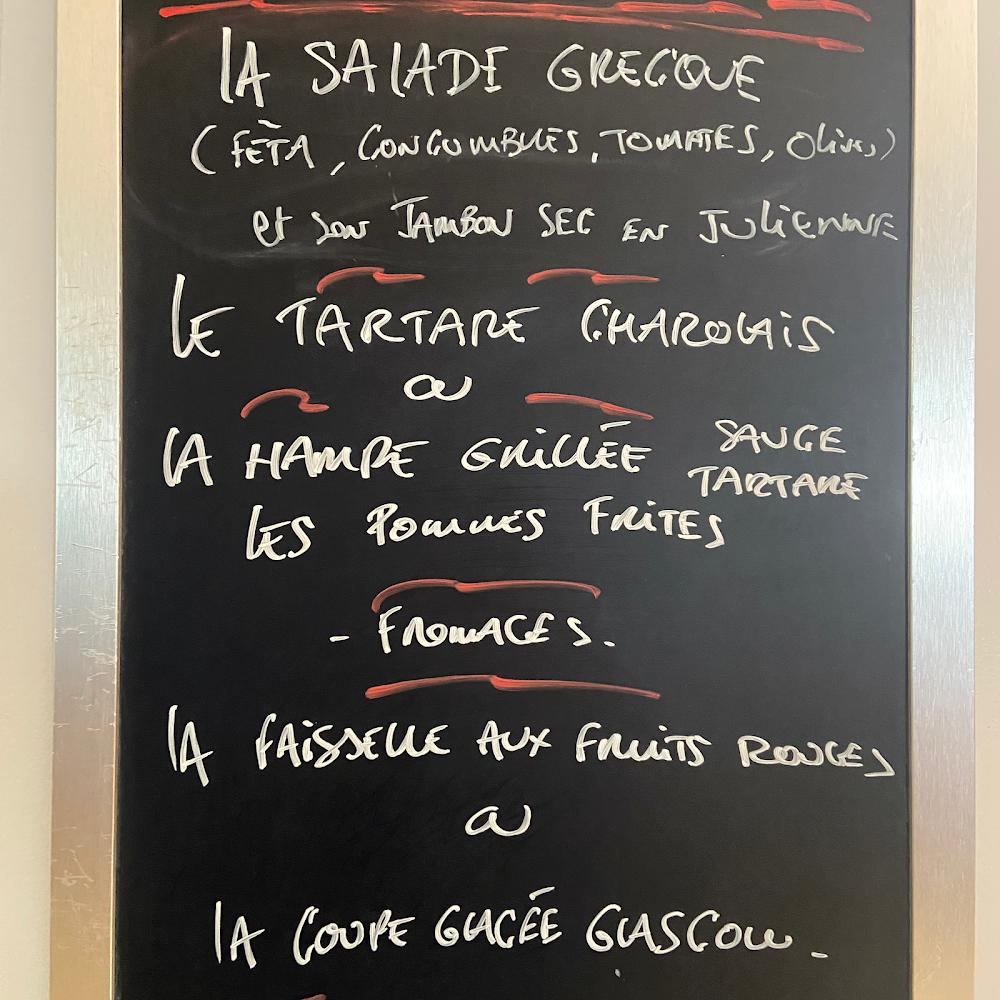 LA SALADE GRECQUE
(FÈTA, CONCOMBRES, TOMATES, Olives)
et son JAMBON SEC EN JULIENNE
LE TARTARE CHAROLAIS
ou
LA HAMPE GRILLÉE SAUCE TARTARE
LES POMMES FRITES
- FROMAGES.
LA FAISSELLE AUX FRUITS ROUGES
ou
LA COUPE GLACÉE GLASCOW.